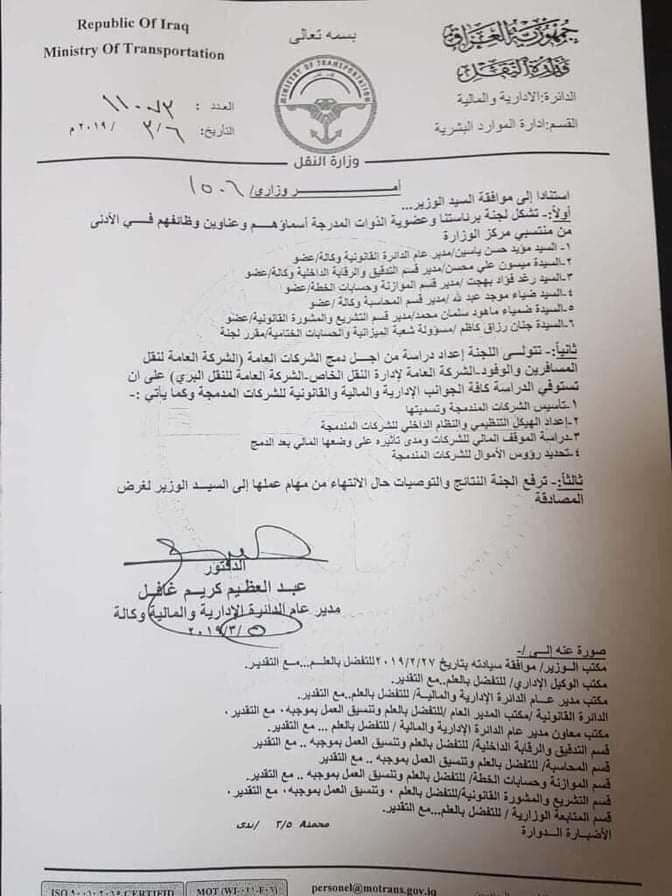 Republic Of Iraq
Ministry Of Transportation
بسمه تعالى
جمهورية العراق
وزارة النقل
الدائرة: الادارية والمالية
القسم: إدارة الموارد البشرية
العدد : ١١٠٧٣
التاريخ: ٣/٦ /٢٠١٩ م
MINISTRY OF TRANSPORTATION
وزارة النقل
أمـــــر وزاري/ ١٥٠٦
استنادا إلى موافقة السيد الوزير...
أولاً:- تشكل لجنة برئاستنا وعضوية الذوات المدرجة أسماؤهم وعناوين وظائفهم في الأدنى
من منتسبي مركز الوزارة
١- السيد مؤيد حسن ياسين/مدير عام الدائرة القانونية وكالة/عضو
٢-السيدة ميسون علي محسن/مدير قسم التدقيق والرقابة الداخلية وكالة/عضو
٣-السيد رغد فؤاد بهجت /مدير قسم الموازنة وحسابات الخطة/عضو
٤-السيد ضياء موجد عبد لله /مدير قسم المحاسبة وكالة /عضو
٥-السيدة ضمياء ماهود سلمان محمد/مدير قسم التشريع والمشورة القانونية/عضو
٦-السيدة جنان رزاق كاظم /مسؤولة شعبة الميزانية والحسابات الختامية/مقرر لجنة
ثانياً:- تتولى اللجنة إعداد دراسة من اجل دمج الشركات العامة (الشركة العامة لنقل
المسافرين والوفود-الشركة العامة لإدارة النقل الخاص-الشركة العامة للنقل البري) على ان
تستوفي الدراسة كافة الجوانب الإدارية والمالية والقانونية للشركات المدمجة وكما يأتي :-
١-تأسيس الشركات المندمجة وتسميتها
٢-إعداد الهيكل التنظيمي والنظام الداخلي للشركات المندمجة
٣-دراسة الموقف المالي للشركات ومدى تأثيره على وضعها المالي بعد الدمج
٤-تحديد رؤوس الأموال للشركات المندمجة
ثالثاً:- ترفع الجنة النتائج والتوصيات حال الانتهاء من مهام عملها إلى السيد الوزير لغرض
المصادقة
الدكتور
عبد العظيم كريم غافل
مدير عام الدائرة الإدارية والمالية وكالة
٢٠١٩/٣/٥
صورة عنه إلى /-
مكتب الوزير/ موافقة سيادته بتاريخ ٢٠١٩/٢/٢٧ للتفضل بالعلم...مع التقدير.
مكتب الوكيل الإداري/ للتفضل بالعلم..مع التقدير.
مكتب مدير عام الدائرة الإدارية والمالية/ للتفضل بالعلم..مع التقدير.
الدائرة القانونية /مكتب المدير العام /للتفضل بالعلم وتنسيق العمل بموجبه٠ مع التقدير .
مكتب معاون مدير عام الدائرة الإدارية والمالية / للتفضل بالعلم ... مع التقدير.
قسم التدقيق والرقابة الداخلية/ للتفضل بالعلم وتنسيق العمل بموجبه .. مع التقدير
قسم المحاسبة/ للتفضل بالعلم وتنسيق العمل بموجبه .. مع التقدير
قسم الموازنة وحسابات الخطة/ للتفضل بالعلم وتنسيق العمل بموجبه .. مع التقدير.
قسم التشريع والمشورة القانونية/للتفضل بالعلم ٠ وتنسيق العمل بموجبه٠ مع التقدير .
قسم المتابعة الوزارية / للتفضل بالعلم...مع التقدير.
الأضبارة الدوارة
٣/٥ /ندى
personel@motrans.gov.iq